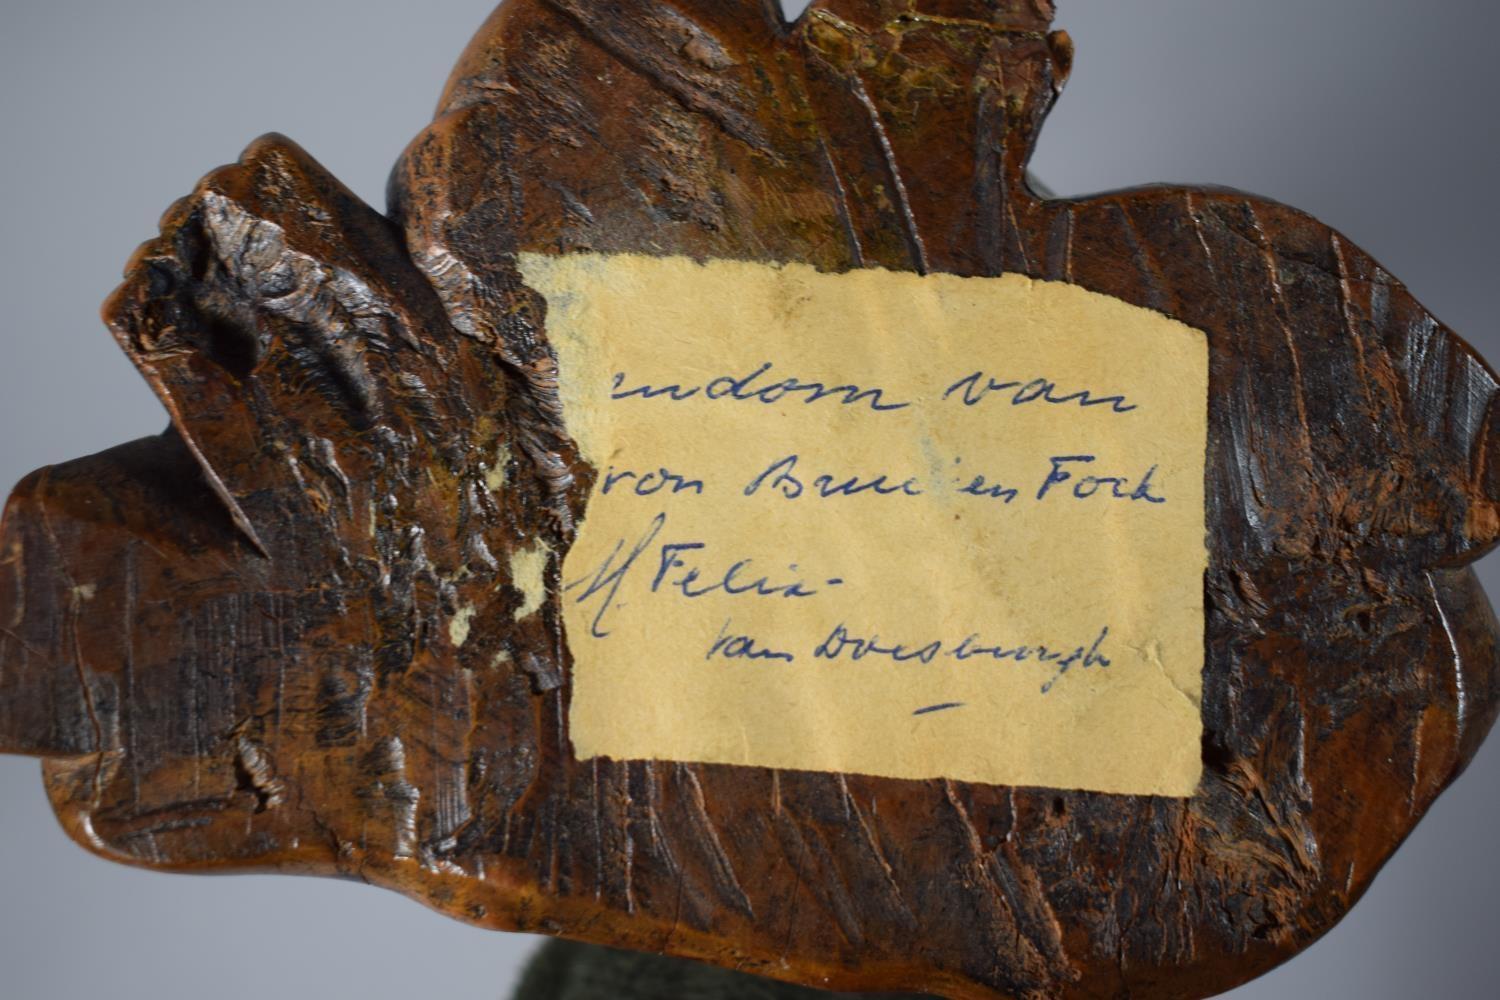 endom van
von Brucken Fock
H. Felix-
van Doesburgh